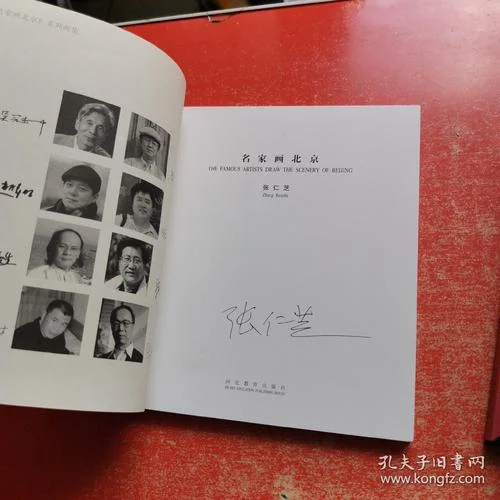 名家画北京》系列画集
名家画北京
THE FAMOUS ARTISTS DRAW THE SCENERY OF BEIJING
张仁芝
Zhang Renzhi
张仁芝
河北教育出版社
HE BEI EDUCATION PUBLISHING HOUSE
孔夫子旧书网
www.kongfz.com